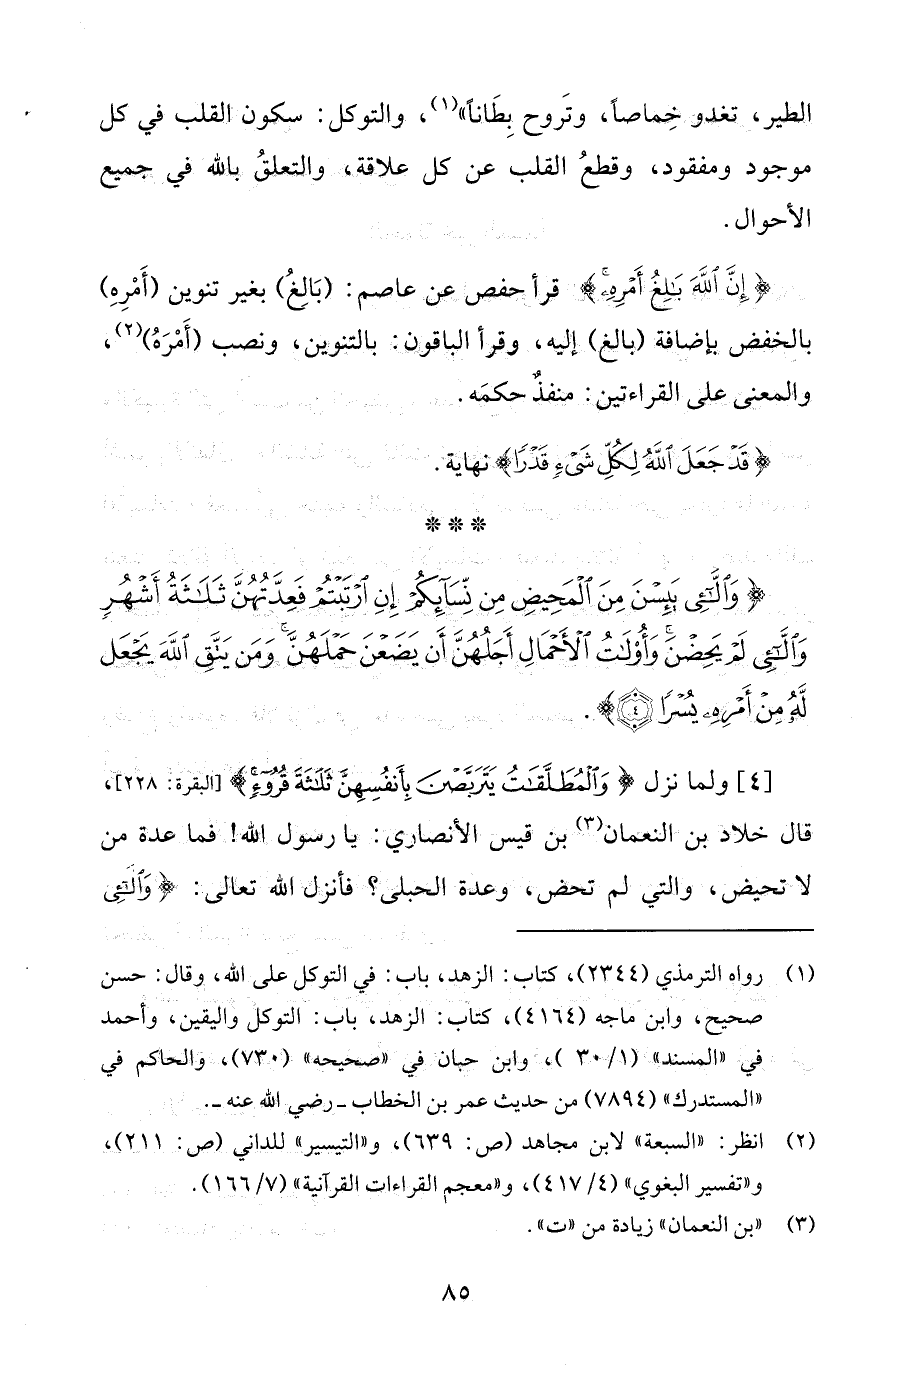 الطير، تغدو خِماصاً، وتَروح بِطَاناً»(١)، والتوكل: سكون القلب في كل
موجود ومفقود، وقطعُ القلب عن كل علاقة، والتعلقُ بالله في جميع
الأحوال.
﴿إِنَّ ٱللَّهَ بَٰلِغُ أَمۡرِهِۦۚ﴾ قرأ حفص عن عاصم: (بَالِغُ) بغير تنوين (أَمْرِهِ)
بالخفض بإضافة (بالغ) إليه، وقرأ الباقون: بالتنوين، ونصب (أَمْرَهُ)(٢)،
والمعنى على القراءتين: منفذٌ حكمَه.
﴿قَدۡ جَعَلَ ٱللَّهُ لِكُلِّ شَيۡءٖ قَدۡرٗا﴾ نهاية.
***
﴿وَٱلَّٰٓـِٔي يَئِسۡنَ مِنَ ٱلۡمَحِيضِ مِن نِّسَآئِكُمۡ إِنِ ٱرۡتَبۡتُمۡ فَعِدَّتُهُنَّ ثَلَٰثَةُ أَشۡهُرٖ
وَٱلَّٰٓـِٔي لَمۡ يَحِضۡنَۚ وَأُوْلَٰتُ ٱلۡأَحۡمَالِ أَجَلُهُنَّ أَن يَضَعۡنَ حَمۡلَهُنَّۚ وَمَن يَتَّقِ ٱللَّهَ يَجۡعَل
لَّهُۥ مِنۡ أَمۡرِهِۦ يُسۡرٗا ٤﴾.
[٤] ولما نزل ﴿وَٱلۡمُطَلَّقَٰتُ يَتَرَبَّصۡنَ بِأَنفُسِهِنَّ ثَلَٰثَةَ قُرُوٓءٖۚ﴾ [البقرة: ٢٢٨]،
قال خلاد بن النعمان(٣) بن قيس الأنصاري: يا رسول الله! فما عدة من
لا تحيض، والتي لم تحض، وعدة الحبلى؟ فأنزل الله تعالى: ﴿وَٱلَّٰٓـِٔي
(١) رواه الترمذي (٢٣٤٤)، كتاب: الزهد، باب: في التوكل على الله، وقال: حسن
صحيح، وابن ماجه (٤١٦٤)، كتاب: الزهد، باب: التوكل واليقين، وأحمد
في «المسند» (١/ ٣٠ )، وابن حبان في «صحيحه» (٧٣٠)، والحاكم في
«المستدرك» (٧٨٩٤) من حديث عمر بن الخطاب ـ رضي الله عنه ـ.
(٢) انظر: «السبعة» لابن مجاهد (ص: ٦٣٩)، و«التيسير» للداني (ص: ٢١١)،
و«تفسير البغوي» (٤/ ٤١٧)، و«معجم القراءات القرآنية» (٧/ ١٦٦).
(٣) «بن النعمان» زيادة من «ت».
٨٥